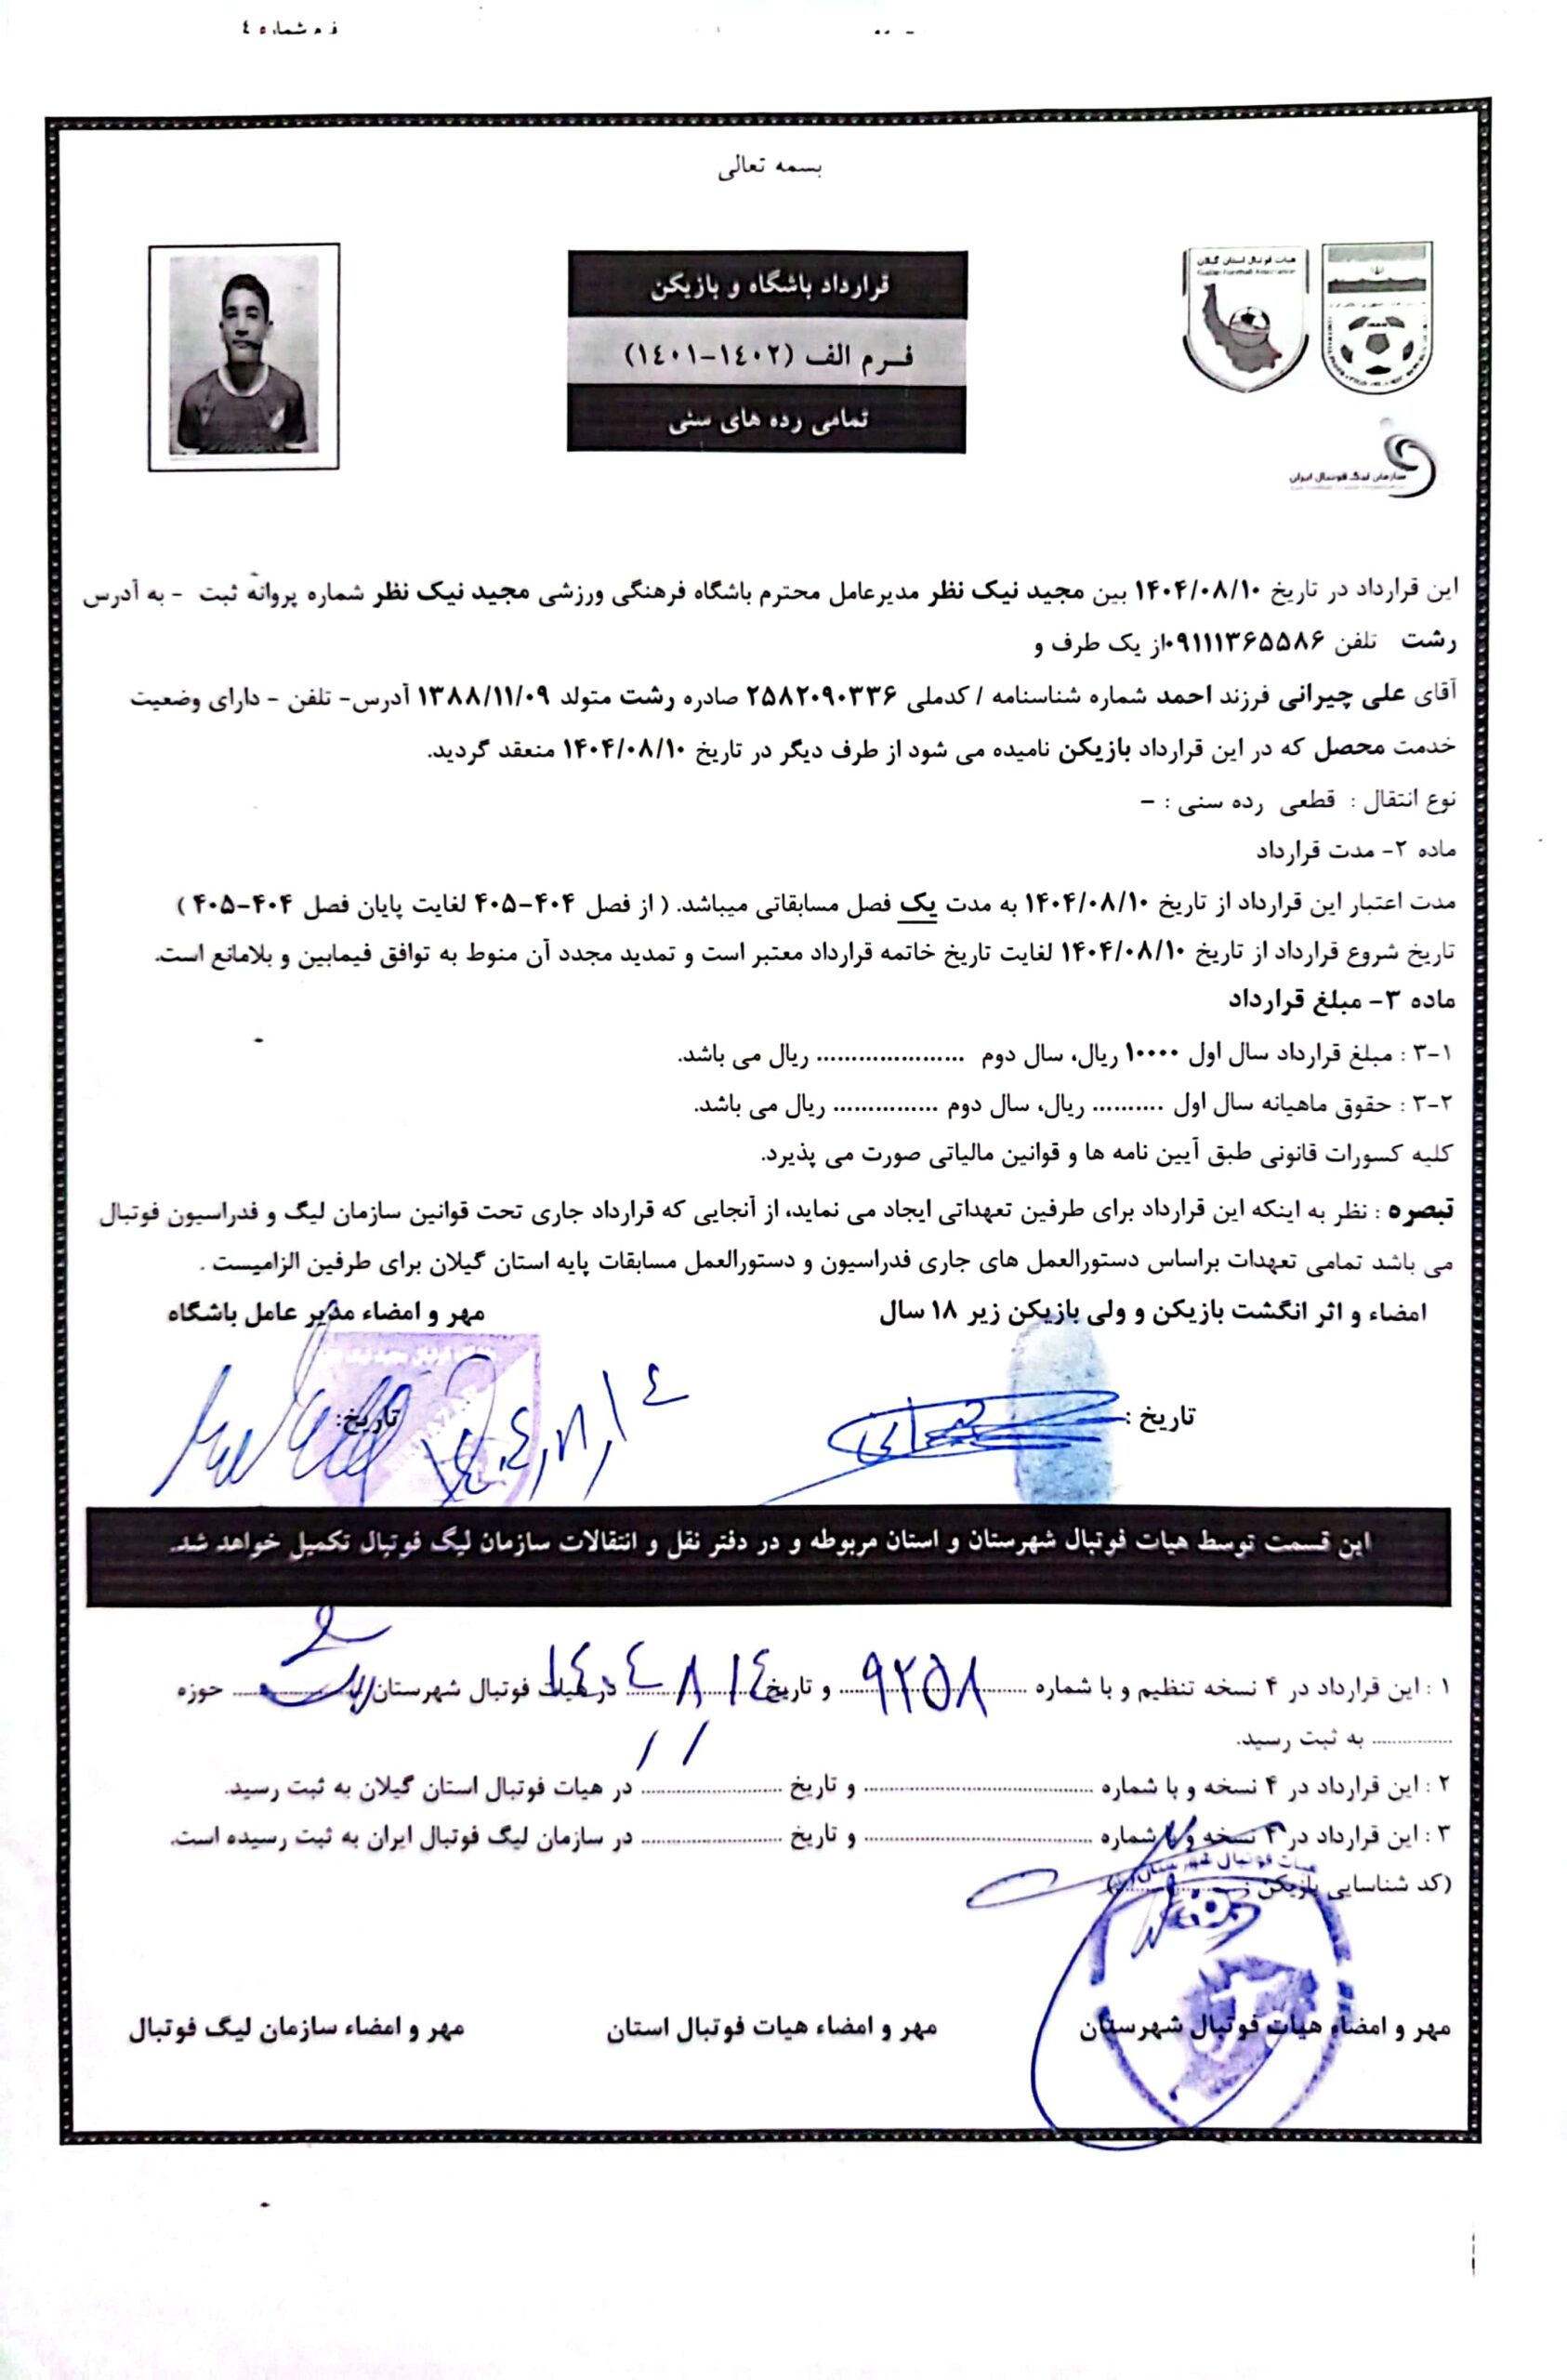 فرم شماره ٤
بسمه تعالی
هیات فوتبال استان گیلان
Guilan Football Association
قرارداد باشگاه و بازیکن
فرم الف (١٤٠٢-١٤٠١)
تمامی رده های سنی
سازمان لیگ فوتبال ایران
این قرارداد در تاریخ ۱۴۰۴/۰۸/۱۰ بین مجید نیک نظر مدیرعامل محترم باشگاه فرهنگی ورزشی مجید نیک نظر شماره پروانه ثبت - به آدرس
رشت تلفن ۰۹۱۱۱۳۶۵۵۸۶از یک طرف و
آقای علی چیرانی فرزند احمد شماره شناسنامه / کدملی ۲۵۸۲۰۹۰۳۳۶ صادره رشت متولد ۱۳۸۸/۱۱/۰۹ آدرس- تلفن - دارای وضعیت
خدمت محصل که در این قرارداد بازیکن نامیده می شود از طرف دیگر در تاریخ ۱۴۰۴/۰۸/۱۰ منعقد گردید.
نوع انتقال : قطعی رده سنی : –
ماده ۲- مدت قرارداد
مدت اعتبار این قرارداد از تاریخ ۱۴۰۴/۰۸/۱۰ به مدت یک فصل مسابقاتی میباشد. ( از فصل ۴۰۴-۴۰۵ لغایت پایان فصل ۴۰۴-۴۰۵ )
تاریخ شروع قرارداد از تاریخ ۱۴۰۴/۰۸/۱۰ لغایت تاریخ خاتمه قرارداد معتبر است و تمدید مجدد آن منوط به توافق فیمابین و بلامانع است.
ماده ۳- مبلغ قرارداد
۳-۱ : مبلغ قرارداد سال اول ۱۰۰۰۰ ریال، سال دوم ..................... ریال می باشد.
۳-۲ : حقوق ماهیانه سال اول .......... ریال، سال دوم ............... ریال می باشد.
کلیه کسورات قانونی طبق آیین نامه ها و قوانین مالیاتی صورت می پذیرد.
تبصره : نظر به اینکه این قرارداد برای طرفین تعهداتی ایجاد می نماید، از آنجایی که قرارداد جاری تحت قوانین سازمان لیگ و فدراسیون فوتبال
می باشد تمامی تعهدات براساس دستورالعمل های جاری فدراسیون و دستورالعمل مسابقات پایه استان گیلان برای طرفین الزامیست .
امضاء و اثر انگشت بازیکن و ولی بازیکن زیر ۱۸ سال مهر و امضاء مدیر عامل باشگاه
تاریخ : تاریخ: ١٤٠٤,٨,١٤
این قسمت توسط هیات فوتبال شهرستان و استان مربوطه و در دفتر نقل و انتقالات سازمان لیگ فوتبال تکمیل خواهد شد.
۱ : این قرارداد در ۴ نسخه تنظیم و با شماره ٩٢٥٨ و تاریخ ١٤٠٤/٨/١٤ در هیات فوتبال شهرستان رشت حوزه
............... به ثبت رسید.
۲ : این قرارداد در ۴ نسخه و با شماره ............................... و تاریخ .................... در هیات فوتبال استان گیلان به ثبت رسید.
۳ : این قرارداد در ۴ نسخه و با شماره ............................... و تاریخ .................... در سازمان لیگ فوتبال ایران به ثبت رسیده است.
(کد شناسایی بازیکن : ....................)
هیات فوتبال شهرستان
مهر و امضاء هیات فوتبال شهرستان مهر و امضاء هیات فوتبال استان مهر و امضاء سازمان لیگ فوتبال